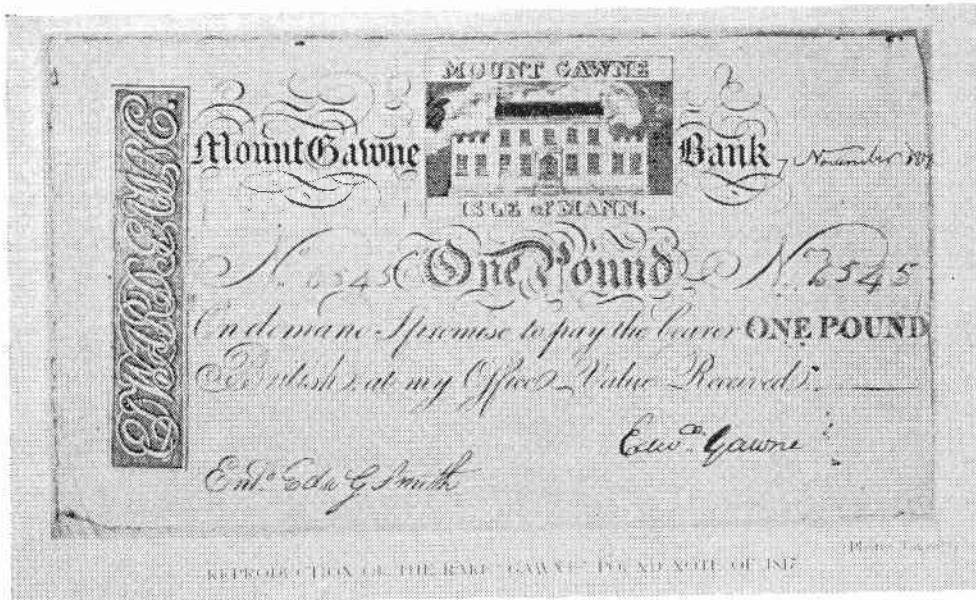 MOUNT GAWNE
Mount Gawne Bank, November
ISLE of MANN.
No. 6545 One Pound No. 6545
On demand I promise to pay the bearer ONE POUND
British, at my Office, Value Received.
EDWARD GAWNE.
Edwd. Gawne
Entd. Edw G Smith
REPRODUCTION OF THE RARE "GAWNE" POUND NOTE OF 1817